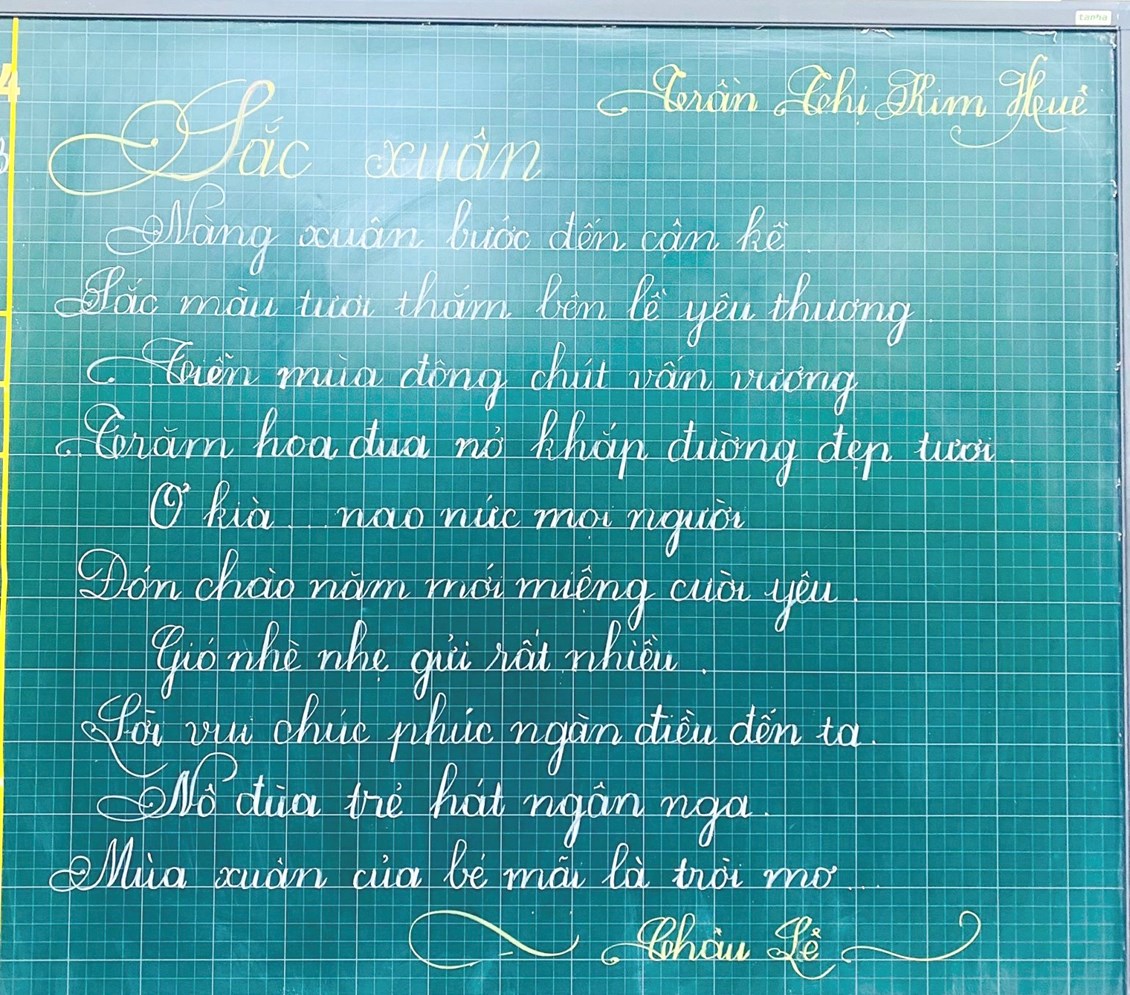 tanha
4
Trần Thị Kim Huề
Sắc xuân
Nàng xuân bước đến cận kề.
Sắc màu tươi thắm bên lề yêu thương.
Tiễn mùa đông chút vấn vương
Trăm hoa đua nở khắp đường đẹp tươi.
Ơ kìa... nao nức mọi người
Đón chào năm mới miệng cười yêu.
Gió nhè nhẹ gửi rất nhiều.
Lời vui chúc phúc ngàn điều đến ta.
Nô đùa trẻ hát ngân nga.
Mùa xuân của bé mãi là trời mơ...
Châu Lê